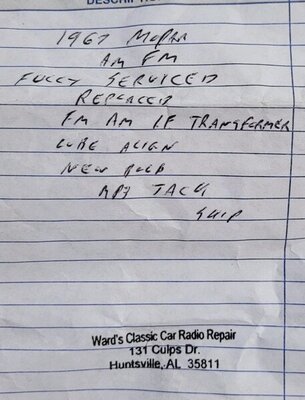 DESCRIPT
1967 MOPAR
AM FM
FULLY SERVICED
REPLACED
FM AM IF TRANSFORMER
LUBE ALIGN
NEW BULB
MP3 JACK
SHIP
Ward's Classic Car Radio Repair
131 Culps Dr.
Huntsville, AL 35811